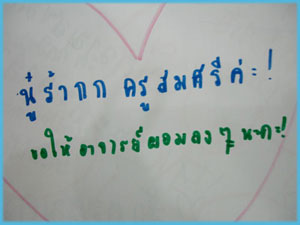 นู๋ร้ากก ครูสมศรีค่ะ!
ขอให้อาจารย์ผอมลงๆ นะคะ!